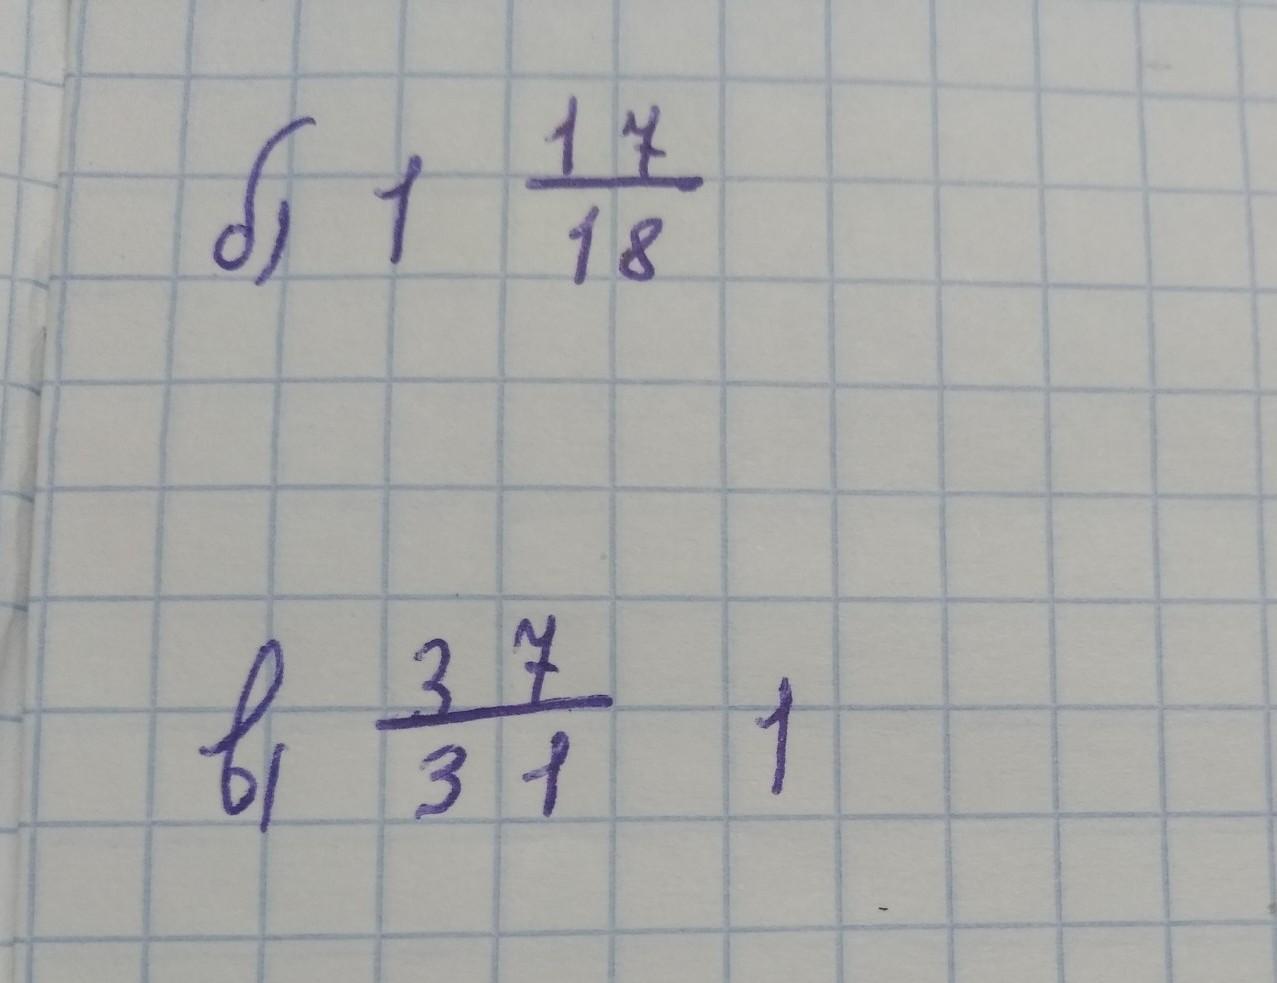 б) 1 17/18
в) 37/31 1